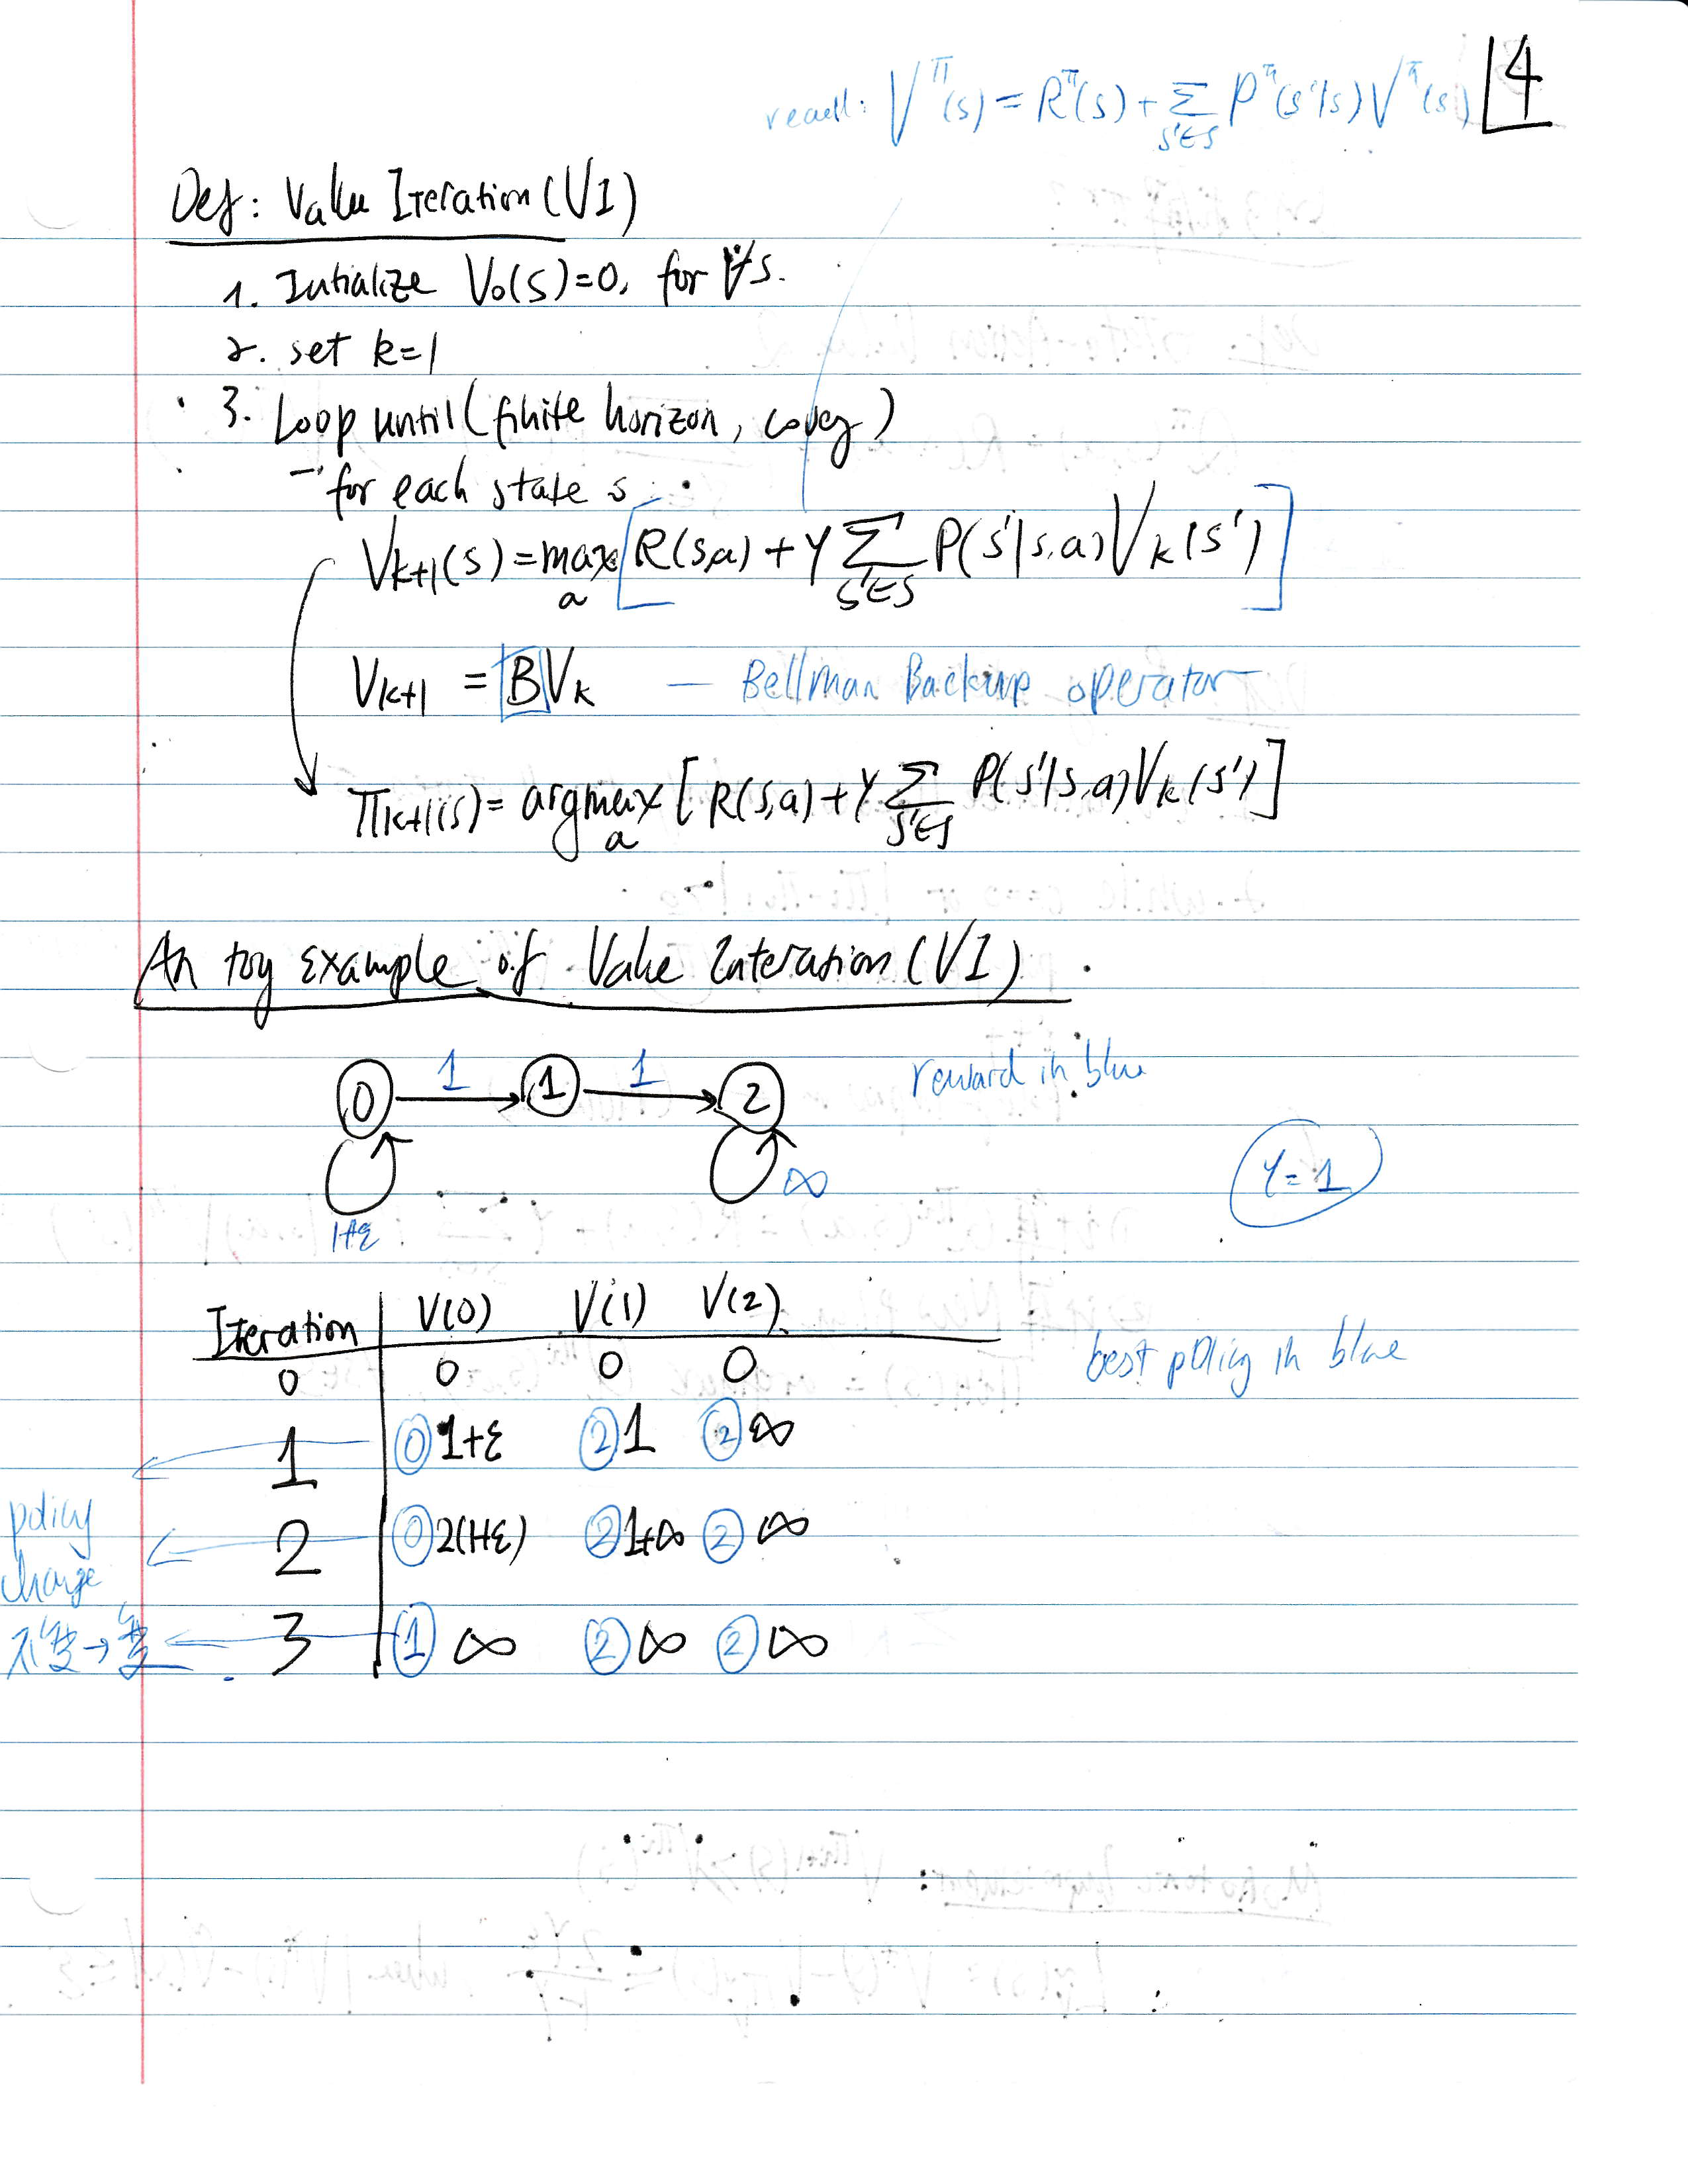 recall: V^π(s) = R^π(s) + Σ_{s'∈S} P^π(s'|s) V^π(s)
4
Def: Value Iteration (VI)
1. Intialize V₀(s)=0, for ∀s.
2. set k=1
3. Loop until (finite horizon, coveg)
- for each state s
V_{k+1}(s) = max_a [R(s,a) + γ Σ_{s'∈S} P(s'|s,a) V_k(s')]
V_{k+1} = B V_k — Bellman Backup operator
π_{k+1}(s) = argmax_a [R(s,a) + γ Σ_{s'∈S} P(s'|s,a) V_k(s')]
An toy example of Value Interation (VI)
0 1 1 1 2 reward in blue
∞ γ=1
1+ε
Iteration V(0) V(1) V(2)
0 0 0 0 best policy in blue
1 ⓪ 1+ε ② 1 ② ∞
policy
2 ⓪ 2(1+ε) ② 1+∞ ② ∞
change
不变→变 3 ① ∞ ② ∞ ② ∞